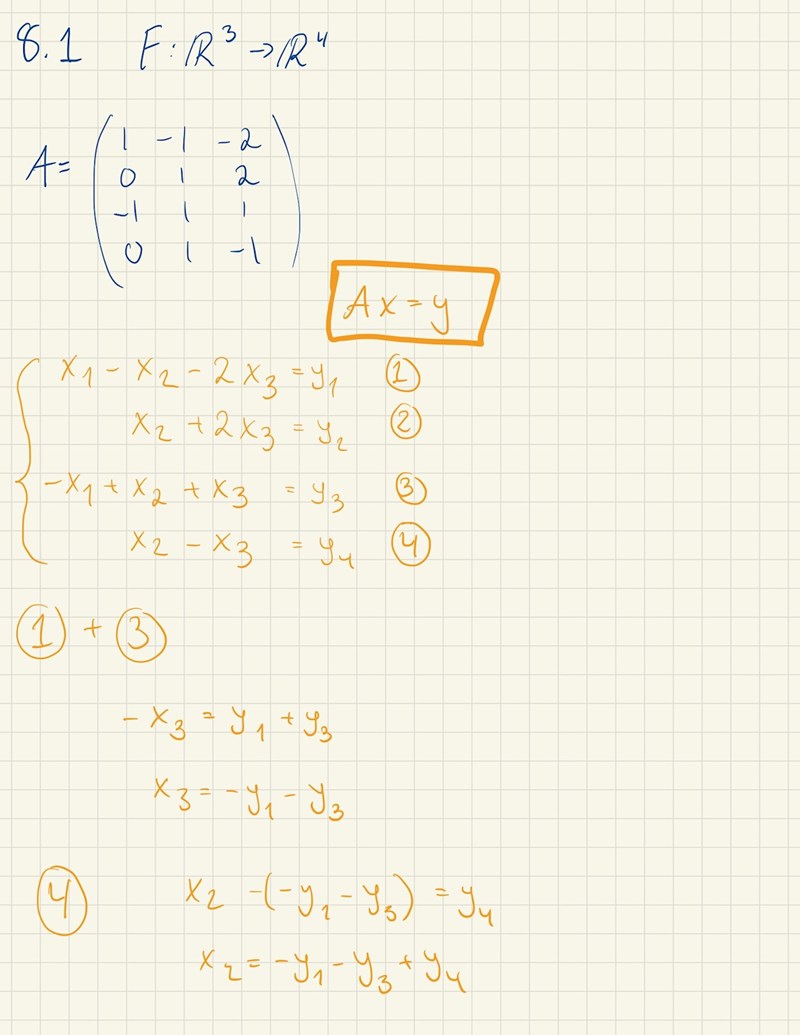 8.1 F: ℝ³ → ℝ⁴
A = ( 1 -1 -2
0 1 2
-1 1 1
0 1 -1 )
Ax = y
{ x₁ - x₂ - 2x₃ = y₁ ①
x₂ + 2x₃ = y₂ ②
-x₁ + x₂ + x₃ = y₃ ③
x₂ - x₃ = y₄ ④
① + ③
-x₃ = y₁ + y₃
x₃ = -y₁ - y₃
④ x₂ -(-y₁ - y₃) = y₄
x₂ = -y₁ - y₃ + y₄